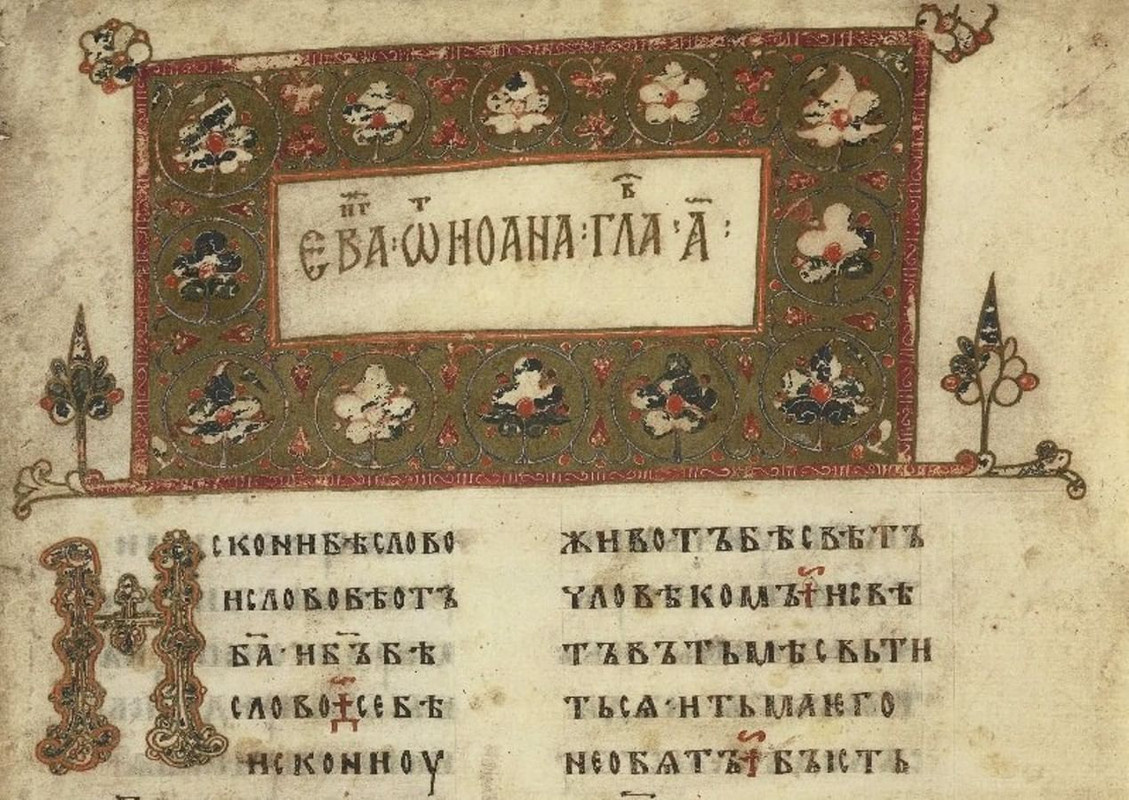 ЕВАНГ·ѠТ ИОАНА·ГЛАВА·А҃:
ИСКОНИ БѢ СЛОВО
И СЛОВО БѢ ОТЪ
БА҃·И БЪ҃ БѢ
СЛОВО СЕ БѢ
ИСКОНИ ОУ
ЖИВОТЪ БѢ СВѢТЪ
ЧЛОВѢКОМЪ И СВѢ
ТЪ ВЪ ТЬМѢ СВЬТИ
ТЬСѦ·И ТЬМА ѤГО
НЕ ОБѦТЪ БЫСТЬ